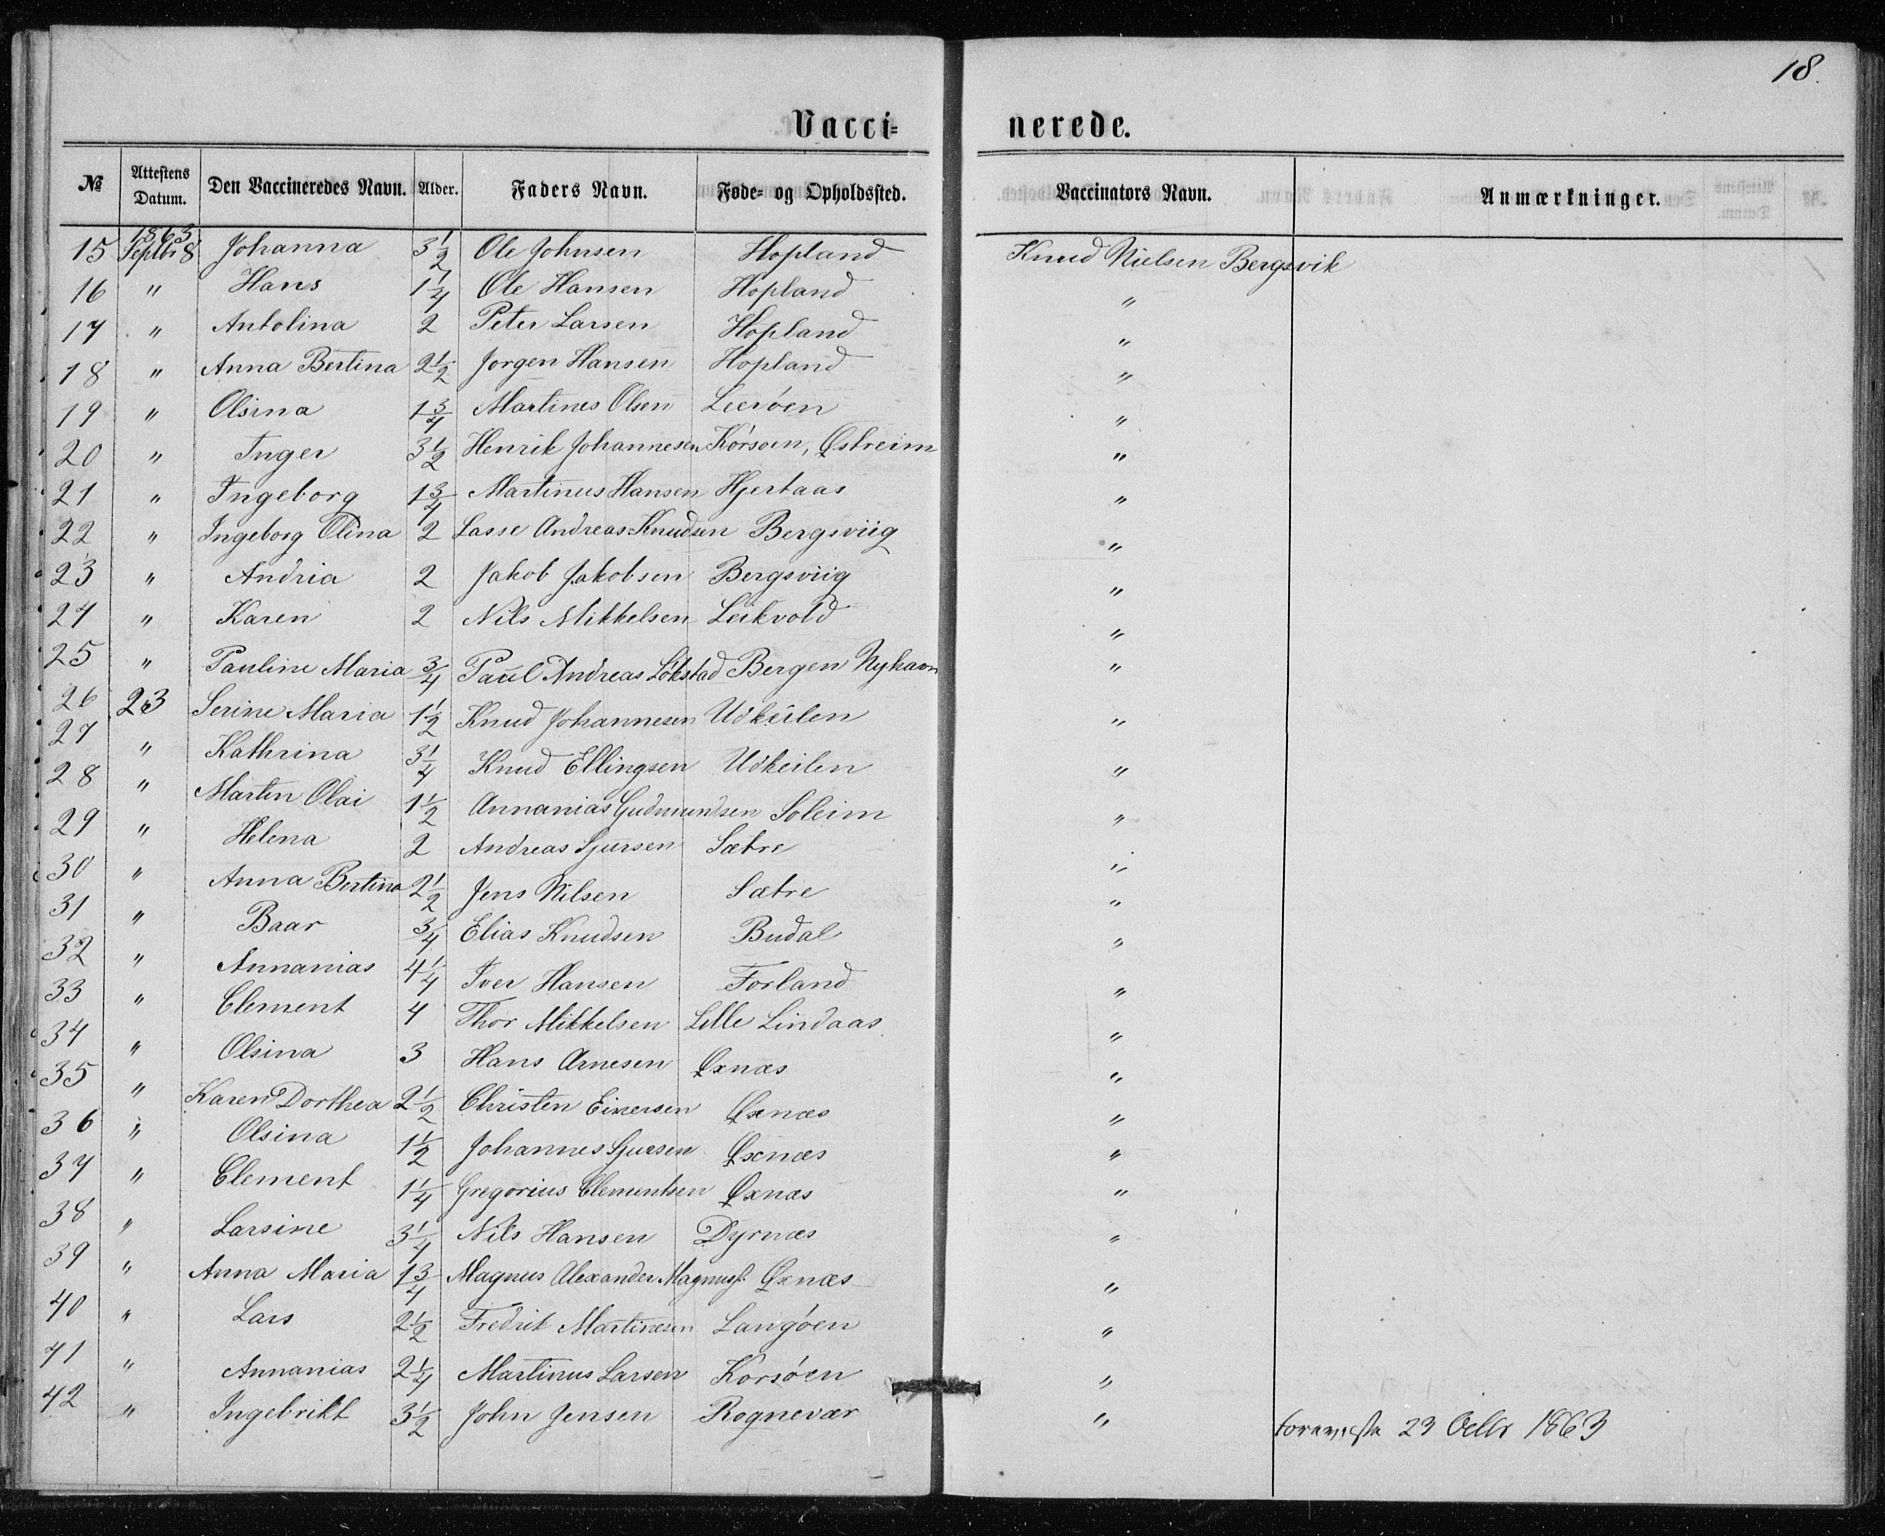 18.
Vacci- nerede.
№ Attestens Datum. Den Vaccineredes Navn. Alder. Faders Navn. Føde- og Opholdssted. Vaccinators Navn. Anmærkninger.
1863
15 Septbr 8 Johanna 3 1/2 Ole Johnsen Hopland Knud Nielsen Bergsvik
16 " Hans 1 1/4 Ole Hansen Hopland "
17 " Antolina 2 Peter Larsen Hopland "
18 " Anna Bertina 2 1/2 Jørgen Hansen Hopland "
19 " Olsina 1 3/4 Martines Olsen Leerøen "
20 " Inger 3 1/2 Henrik Johannesen Korsøen, Østreim "
21 " Ingeborg 1 3/4 Martinus Hansen Hjertaas "
22 " Ingeborg Olina 2 Lasse Andreas Knudsen Bergsviig "
23 " Andria 2 Jakob Jakobsen Bergsviig "
24 " Karen 2 Nils Mikkelsen Leikvold "
25 " Pauline Maria 3/4 Paul Andreas Løkstad Bergen Nyhavn "
26 23 Serine Maria 1 1/2 Knud Johannesen Udkiilen "
27 " Kathrina 3 1/4 Knud Ellingsen Udkeilen "
28 " Martin Olai 1 1/2 Annanias Gudmundsen Soleim "
29 " Helena 2 Andreas Sjursen Sætre "
30 " Anna Bertina 2 1/2 Jens Nilsen Sætre "
31 " Baar 3/4 Elias Knudsen Budal "
32 " Annanias 4 1/4 Iver Hansen Forland "
33 " Clement 4 Thor Mikkelsen Lille Lindaas "
34 " Olsina 3 Hans Arnesen Øxnæs "
35 " Karen Dorthea 2 1/2 Christen Einersen Øxnæs "
36 " Olsina 1 1/2 Johannes Sjursen Øxnæs "
37 " Clement 1 1/4 Gregorius Clementsen Øxnæs "
38 " Larsine 3 1/4 Nils Hansen Dyrnæs "
39 " Anna Maria 1 3/4 Magnus Alexander Magnuss. Øxnæs "
40 " Lars 2 1/2 Fredrik Martinesen Langøen "
41 " Annanias 2 1/4 Martinus Larsen Korsøen "
42 " Ingebrikt 3 1/2 John Jensen Rognevær " 23 Octbr 1863